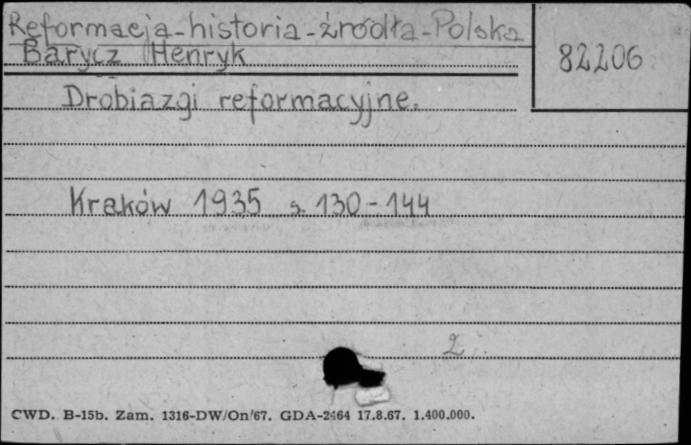 Reformacja-historia-źródła-Polska
Barycz Henryk
82206
Drobiazgi reformacyjne.
Kraków 1935 s. 130-144
2
CWD. B-15b. Zam. 1316-DW/On/67. GDA-2464 17.8.67. 1.400.000.